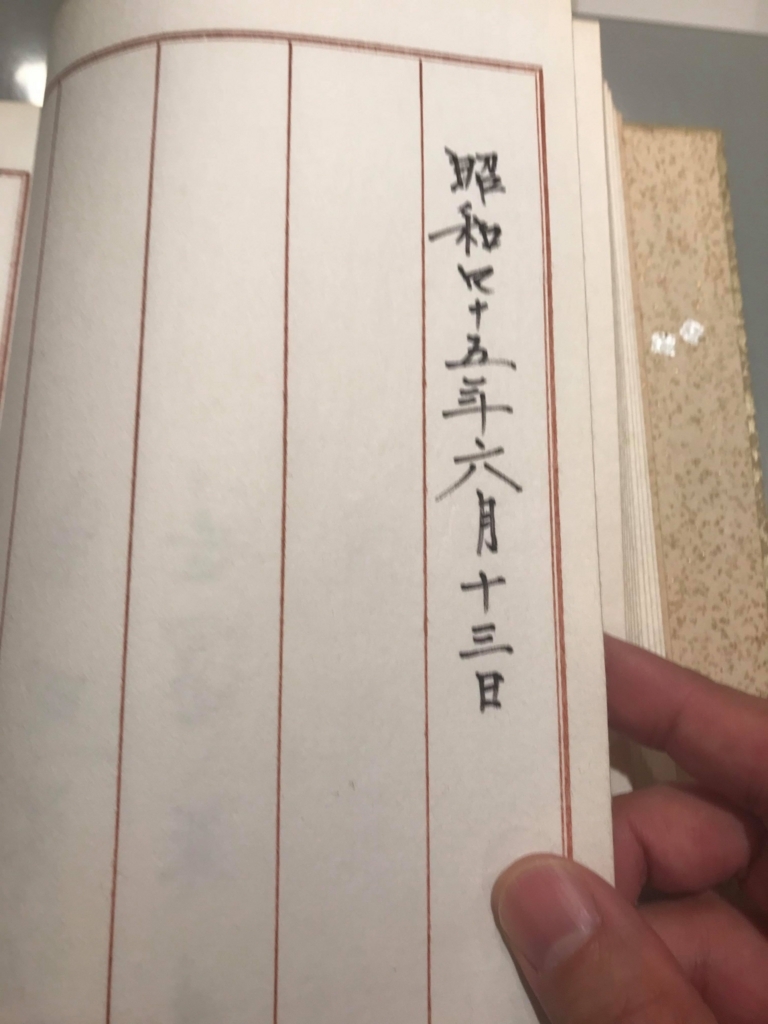 昭和四十五年六月十三日